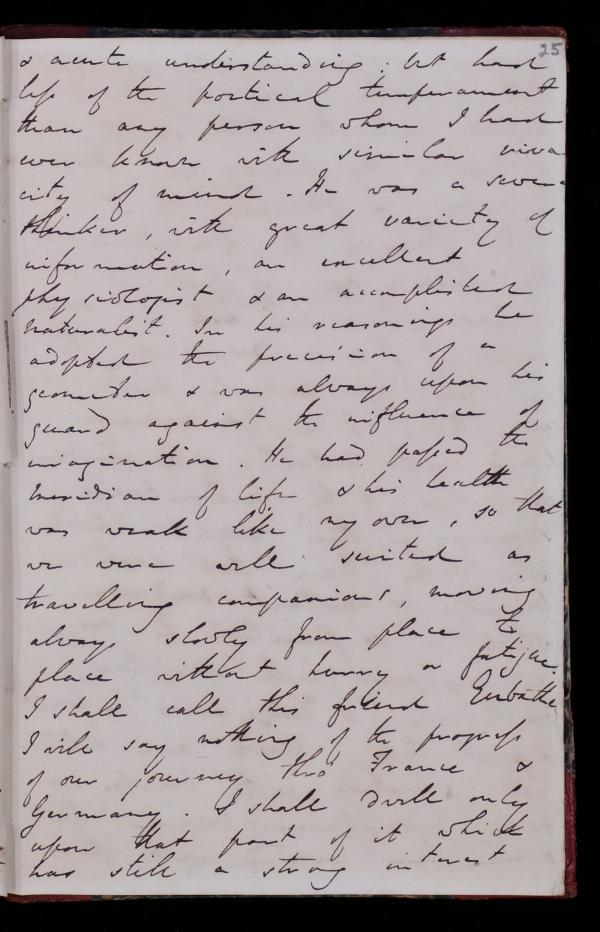 25
& acute understanding; but had
less of the poetical temperament
than any person whom I had
ever known with similar viva
city of mind. He was a severe
thinker, with great variety of
information, an excellent
physiologist & an accomplished
naturalist. In his reasonings he
adopted the precision of a
geometer & was always upon his
guard against the influence of
imagination. He had passed the
meridian of life & his health
was weak like my own, so that
we were well suited as
travelling companions, moving
always slowly from place to
place without hurry or fatigue.
I shall call this friend Eubathe
I will say nothing of the progress
of our journey thro' France &
Germany. I shall dwell only
upon that part of it which
has still a strong interest